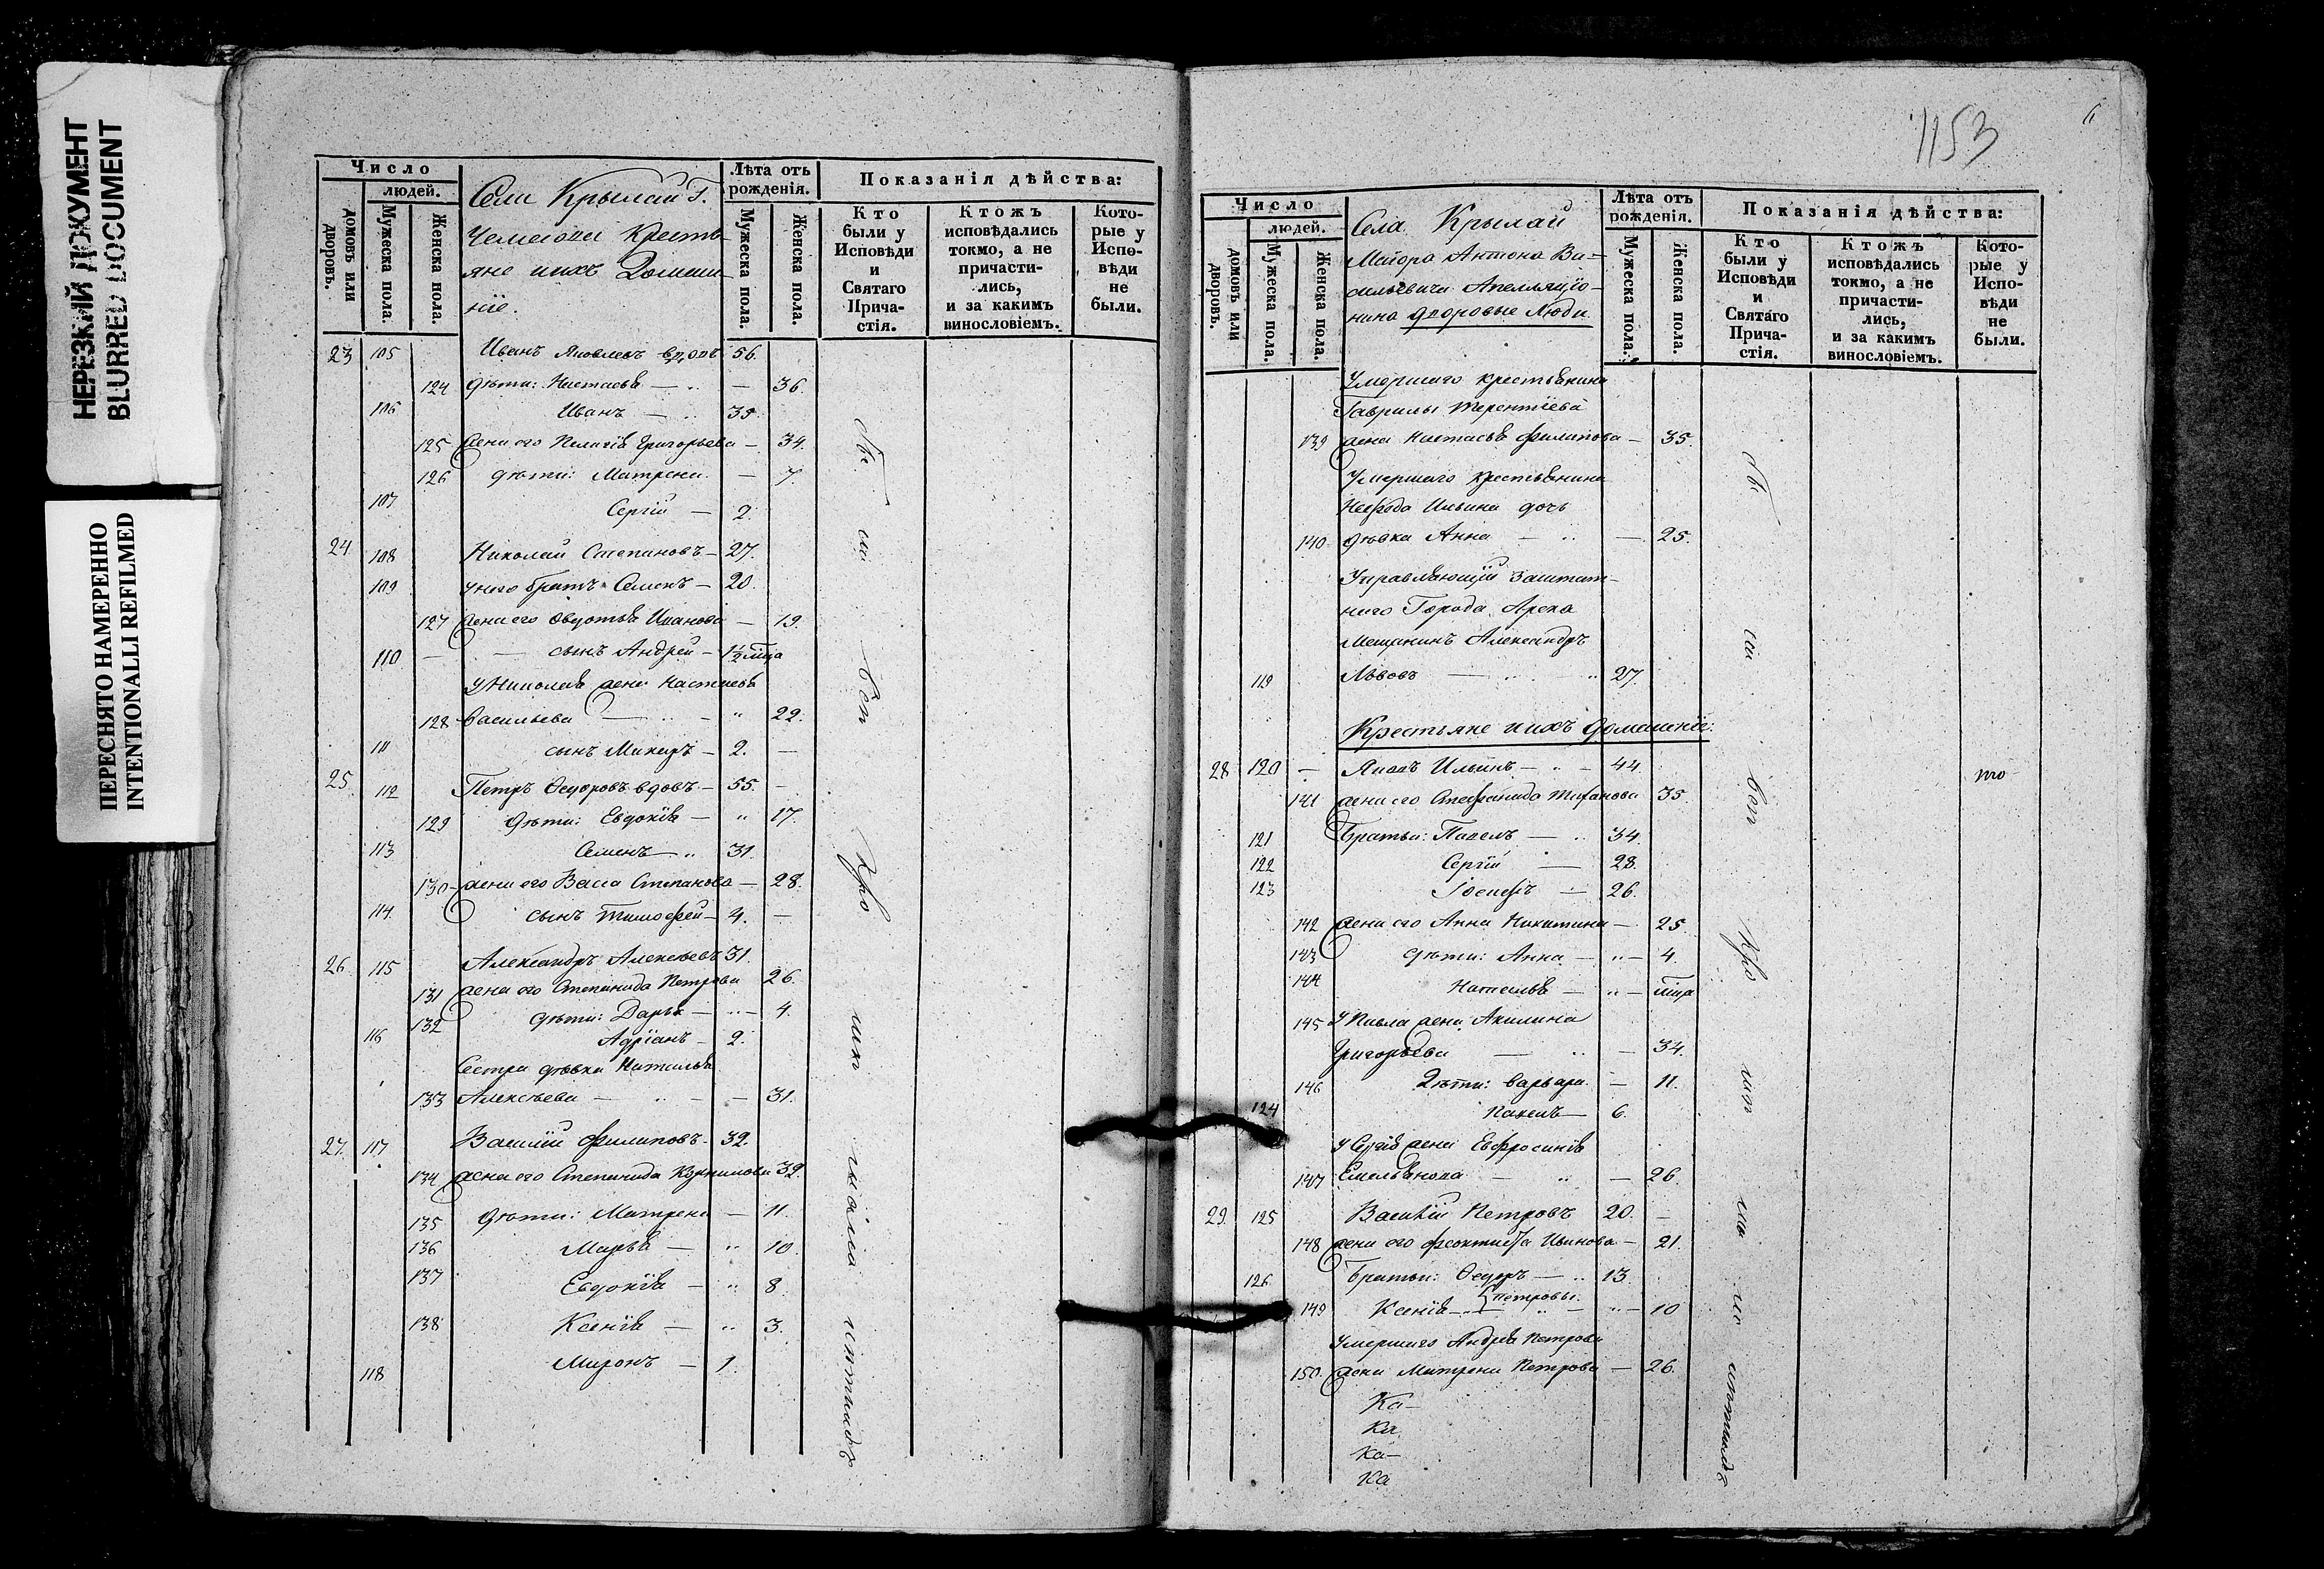 НЕРЕЗКИЙ ДОКУМЕНТ
BLURRED DOCUMENT
ПЕРЕСНЯТО НАМЕРЕННО
INTENTIONALLI REFILMED
Число
людей.
домовъ или дворовъ.
Мужеска пола.
Женска пола.
Села Крылай Г.
крестьяне ихъ Домашніе.
Лѣта отъ рожденія.
Мужеска пола.
Женска пола.
Показанія дѣйства:
Кто были у Исповѣди и Святаго Причастія.
Ктожъ исповѣдались токмо, а не причастились, и за какимъ винословіемъ.
Которые у Исповѣди не были.
23 105 Иванъ Яковлевъ вдовъ 56.
124 дѣти: Настасья — 36.
106 Иванъ — 35.
125 жена его Пелагія Григорьева — 34.
126 дѣти: Матрена — 7.
107 Сергій — 2.
24 108 Николай Степановъ — 27.
109 у него братъ Семенъ — 20.
127 жена его Иванова — 19.
110 — сынъ Андрей — 1½ мца
У Николая жена Настасья
128 Васильева — 22.
111 сынъ — 2. —
25. 112 Петръ Ѳедоровъ вдовъ — 55. —
129 дѣти: Евдокія — " 17.
113 Семенъ — 31.
130 жена его Васса Степанова — 28.
114. сынъ Тимофей — 4. —
26. 115 Александръ Алексѣевъ 31.
131 жена его Степанида Петрова 26.
132 дѣти: Дарья — 4.
116 Адріанъ — 2.
Сестра дѣвка Наталья
133 Алексѣева — 31.
27. 117 Василій Филиповъ — 32.
134 жена его Степанида Корнилова 32.
135 дѣти: Матрена — 11.
136 Марья — " 10.
137 Евдокія — " 8.
138 Ксенія — " 3.
118 Миронъ — 1.
1153
Число
людей.
домовъ или дворовъ.
Мужеска пола.
Женска пола.
Села Крылай
Маіора Антона Васильевича
дворовые Люди
Лѣта отъ рожденія.
Мужеска пола.
Женска пола.
Показанія дѣйства:
Кто были у Исповѣди и Святаго Причастія.
Ктожъ исповѣдались токмо, а не причастились, и за какимъ винословіемъ.
Которые у Исповѣди не были.
Умершаго крестьянина
Гаврилы Терентіева
139 жена Настасья Филипова — 35.
Умершаго крестьянина
Ильина дочь
140 дѣвка Анна — 25.
Управляющій заштатнаго Города Арска
Мещанинъ Александръ
119 Львовъ — 27.
Крестьяне ихъ домашніе.
28 120 — Ильинъ — 44.
141 жена его Стефанида 35.
121 Братья: Павелъ — 34.
122 Сергій — 28.
123 Іосифъ — 26.
142 жена его Анна Никитина — 25.
143 дѣти: Анна — 4.
144 Наталья — мца
145 У Павла жена Акилина
Григорьева — 34.
146 Дѣти: Варвара — 11.
124 Павелъ — 6.
У Сергія жена Евфросинія
147 Емельянова — 26.
29 125 Василій Петровъ 20. —
148 жена его Феоктиста Иванова — 21.
126 Братья: Ѳедоръ — 13.
149 Ксенія } Петровы. — 10
Умершаго Андрея Петрова
150. жена Матрена Петрова — 26.
Ка-
Ка
Ка-
Ка